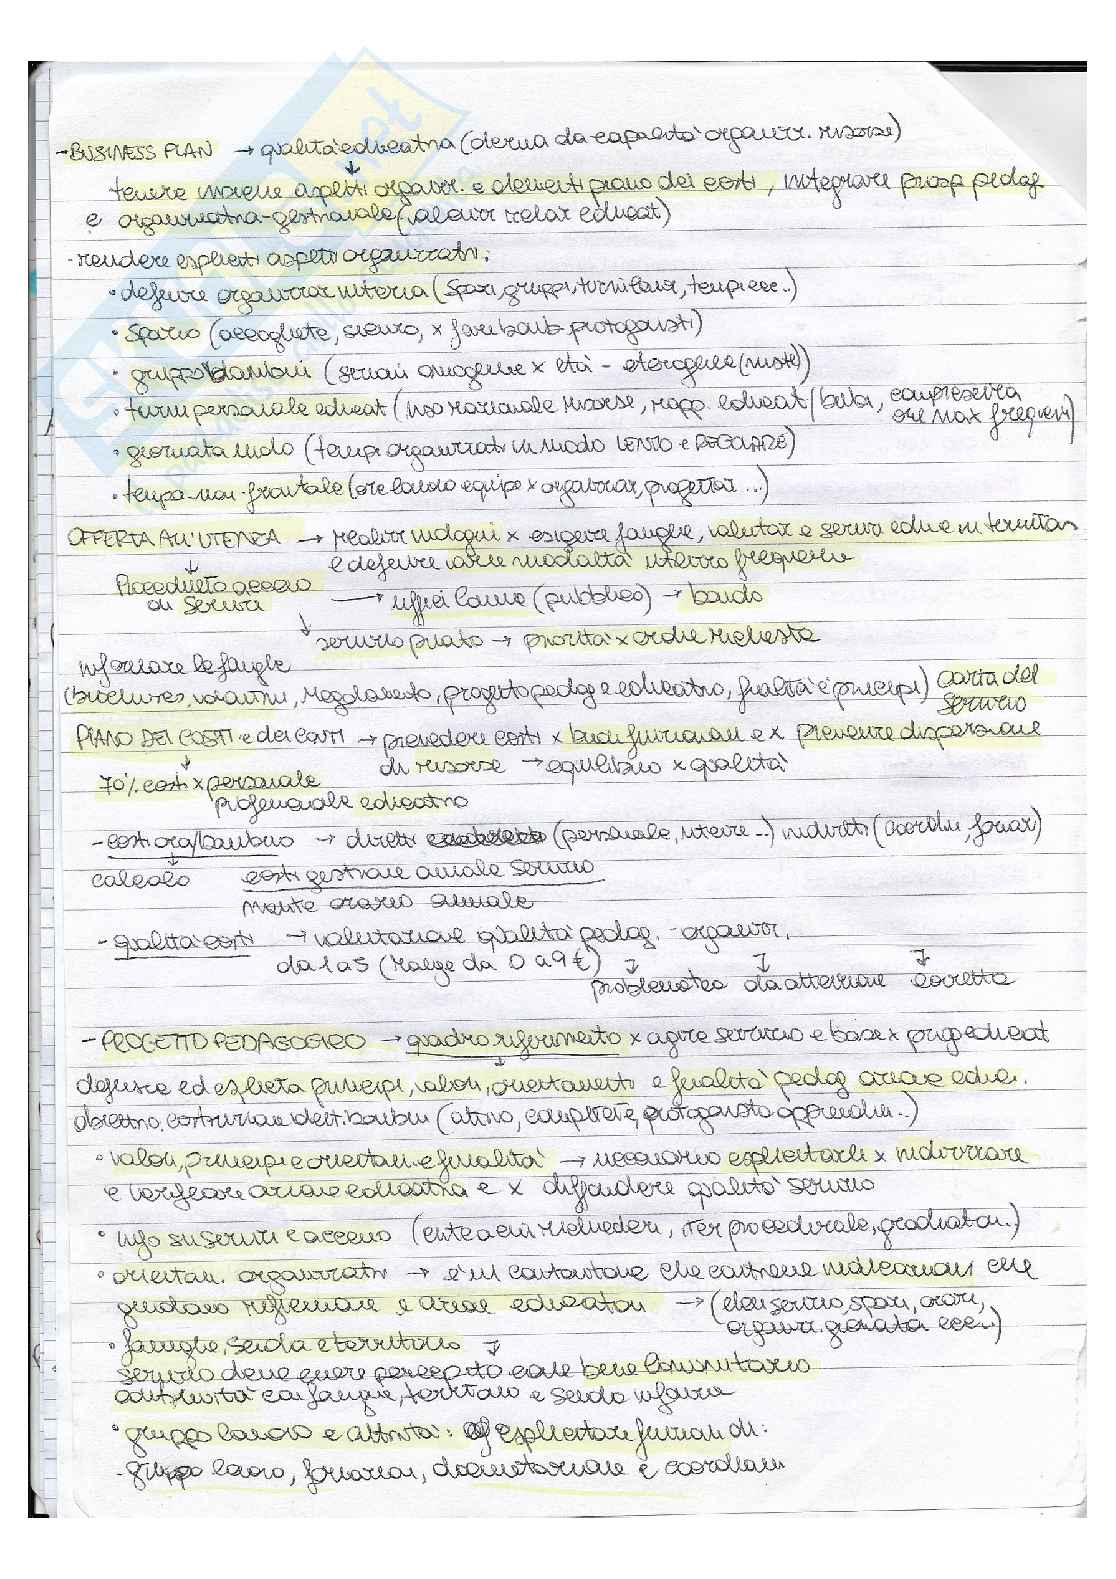 - BUSINESS PLAN → qualità educativa (deriva da capacità organizz. risorse)
↓
tenere insieme aspetti organizz. e elementi piano dei costi, integrare prosp pedag
e organizzativa-gestionale (valorizz relaz educat)
- rendere espliciti aspetti organizzativi:
• definire organizzaz interna (spazi, gruppi, turni lavor, tempi ecc..)
• spazio (accogliente, sicuro, x fare bamb protagonisti)
• gruppo bambini (sezioni omogenee x età - eterogenee (miste))
• turni personale educat (uso razionale risorse, rapp. educat/bimbi, compresenza
ore max frequenza)
• giornata nido (tempi organizzati in modo LENTO e REGOLARE)
• tempo non-frontale (ore lavoro equipe x organizzaz, progettaz ...)
OFFERTA ALL'UTENZA → realizz indagini x esigenze famiglie, valutaz e servizi educ in territorio
↓ e definire varie modalità utilizzo frequenza
Procedure accesso
ai servizi → uffici comune (pubblico) → bando
↓ servizio privato → priorità x ordine richiesta
informare le famiglie
(brochures, volantini, regolamento, progetto pedag e educativo, finalità e principi) carta del
servizio
PIANO DEI COSTI e dei conti → prevedere costi x buon funzionam e x prevenire dispersione
↓ di risorse → equilibrio x qualità
70% costi x personale
professionale educativo
- costi ora/bambino → diretti (personale, utenze ..) indiretti (coordin, formaz)
↓
calcolo costi gestione annale servizio
monte orario annuale
- qualità costi → valutazione qualità pedag. - organizz.
da 1 a 5 (range da 0 a 9 €) ↓ ↓ ↓
problematica da attenzione corretta
- PROGETTO PEDAGOGICO → quadro riferimento x agire servizio e base x prog educat
↓
definisce ed esplicita principi, valori, orientamenti e finalità pedag azione educ.
obiettivo: costruzione ident. bambini (attivo, competente, protagonista apprendim..)
• valori, principi e orientam. e finalità → necessario esplicitarli x indirizzare
e verificare azione educativa e x diffondere qualità servizio
• info su servizi e accesso (ente a cui richiedere, iter procedurale, graduator..)
• orientam. organizzativi → è il contenitore che contiene indicazioni che
guidano riflessione e azione educatori → (elem servizio, spazi, orari,
organizz. giornata ecc..)
• famiglie, scuola e territorio
↓
servizio deve essere percepito come bene comunitario
continuità con famiglie, territorio e scuola infanzia
• gruppo lavoro e attività: esplicitare funzioni di:
- gruppo lavoro, formazion, documentazione e coordinam